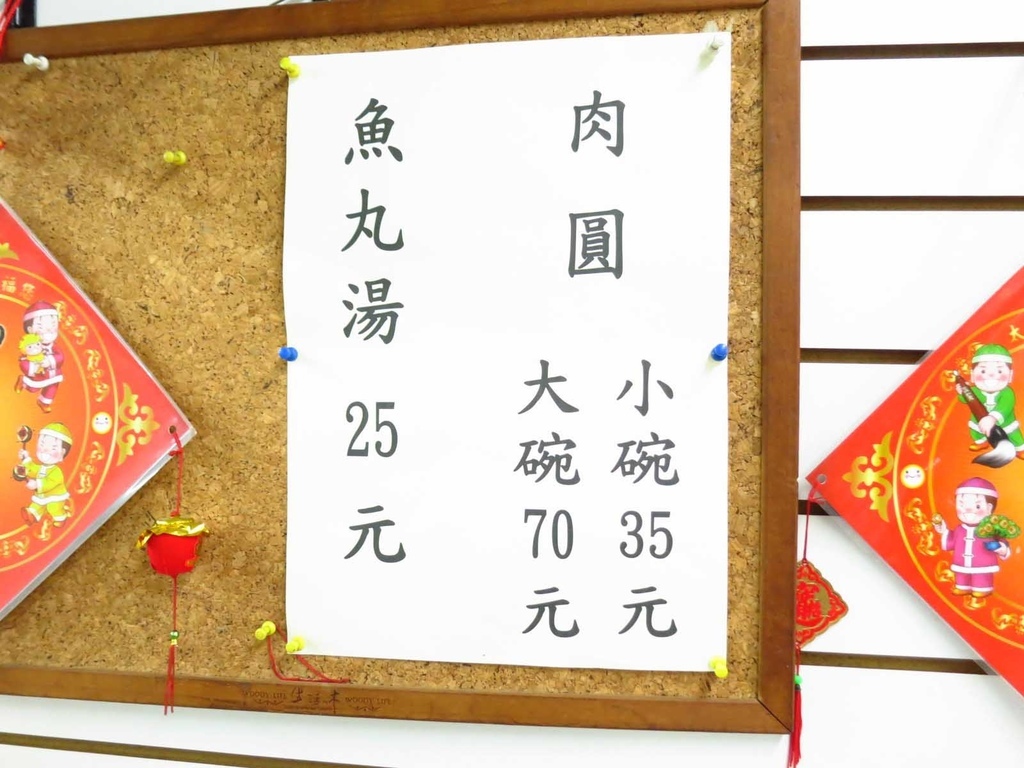 肉圓
小碗35元
大碗70元
魚丸湯 25元
WOODY LIFE 生活木 WOODY LIFE
福
大